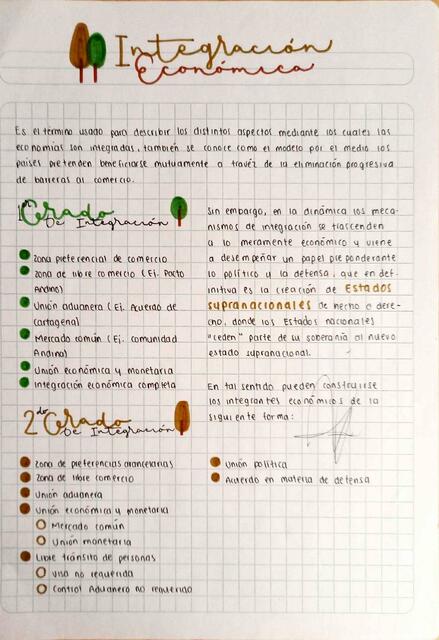 Integración
Económica
Es el término usado para describir los distintos aspectos mediante los cuales las
economías son integradas, también se conoce como el modelo por el medio los
países pretenden beneficiarse mutuamente a través de la eliminación progresiva
de barreras al comercio.
1er Grado
De Integración
Zona preferencial de comercio
Zona de libre comercio (Ej. Pacto
Andino)
Unión aduanera (Ej. Acuerdo de
Cartagena)
Mercado común (Ej. comunidad
Andina)
Unión económica y monetaria
Integración económica completa
Sin embargo, en la dinámica los meca-
nismos de integración se trascienden
a lo meramente económico y viene
a desempeñar un papel preponderante
lo político y la defensa, que en def-
initiva es la creación de Estados
supranacionales de hecho o dere-
cho, donde los Estados nacionales
"ceden" parte de su soberanía al nuevo
estado supranacional.
En tal sentido pueden construirse
los integrantes económicos de la
siguiente forma:
2do Grado
De Integración
Zona de preferencias arancelarias
Zona de libre comercio
Unión aduanera
Unión económica y monetaria
Mercado común
Unión monetaria
Libre tránsito de personas
Visa no requerida
Control Aduanero no requerido
Unión política
Acuerdo en materia de defensa